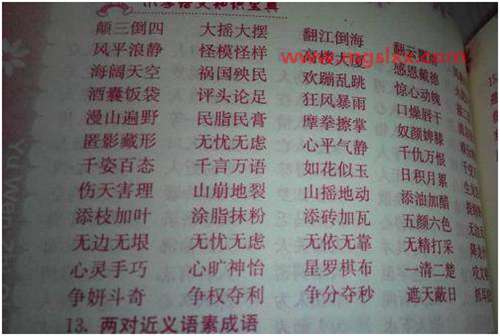 小学语文知识宝典
颠三倒四 大摇大摆 翻江倒海
风平浪静 怪模怪样 感恩戴德
海阔天空 祸国殃民 欢蹦乱跳 惊心动魄
酒囊饭袋 评头论足 狂风暴雨 口燥唇干
漫山遍野 民脂民膏 摩拳擦掌 奴颜婢膝
匿影藏形 无忧无虑 心平气静 千仇万恨
千姿百态 千言万语 如花似玉 日积月累
伤天害理 山崩地裂 山摇地动 添油加醋
添枝加叶 涂脂抹粉 添砖加瓦 五颜六色
无边无垠 无忧无虑 无依无靠 无精打采
心灵手巧 心旷神怡 星罗棋布 一清二楚
争妍斗奇 争权夺利 争分夺秒 遮天蔽日
13. 两对近义语素成语